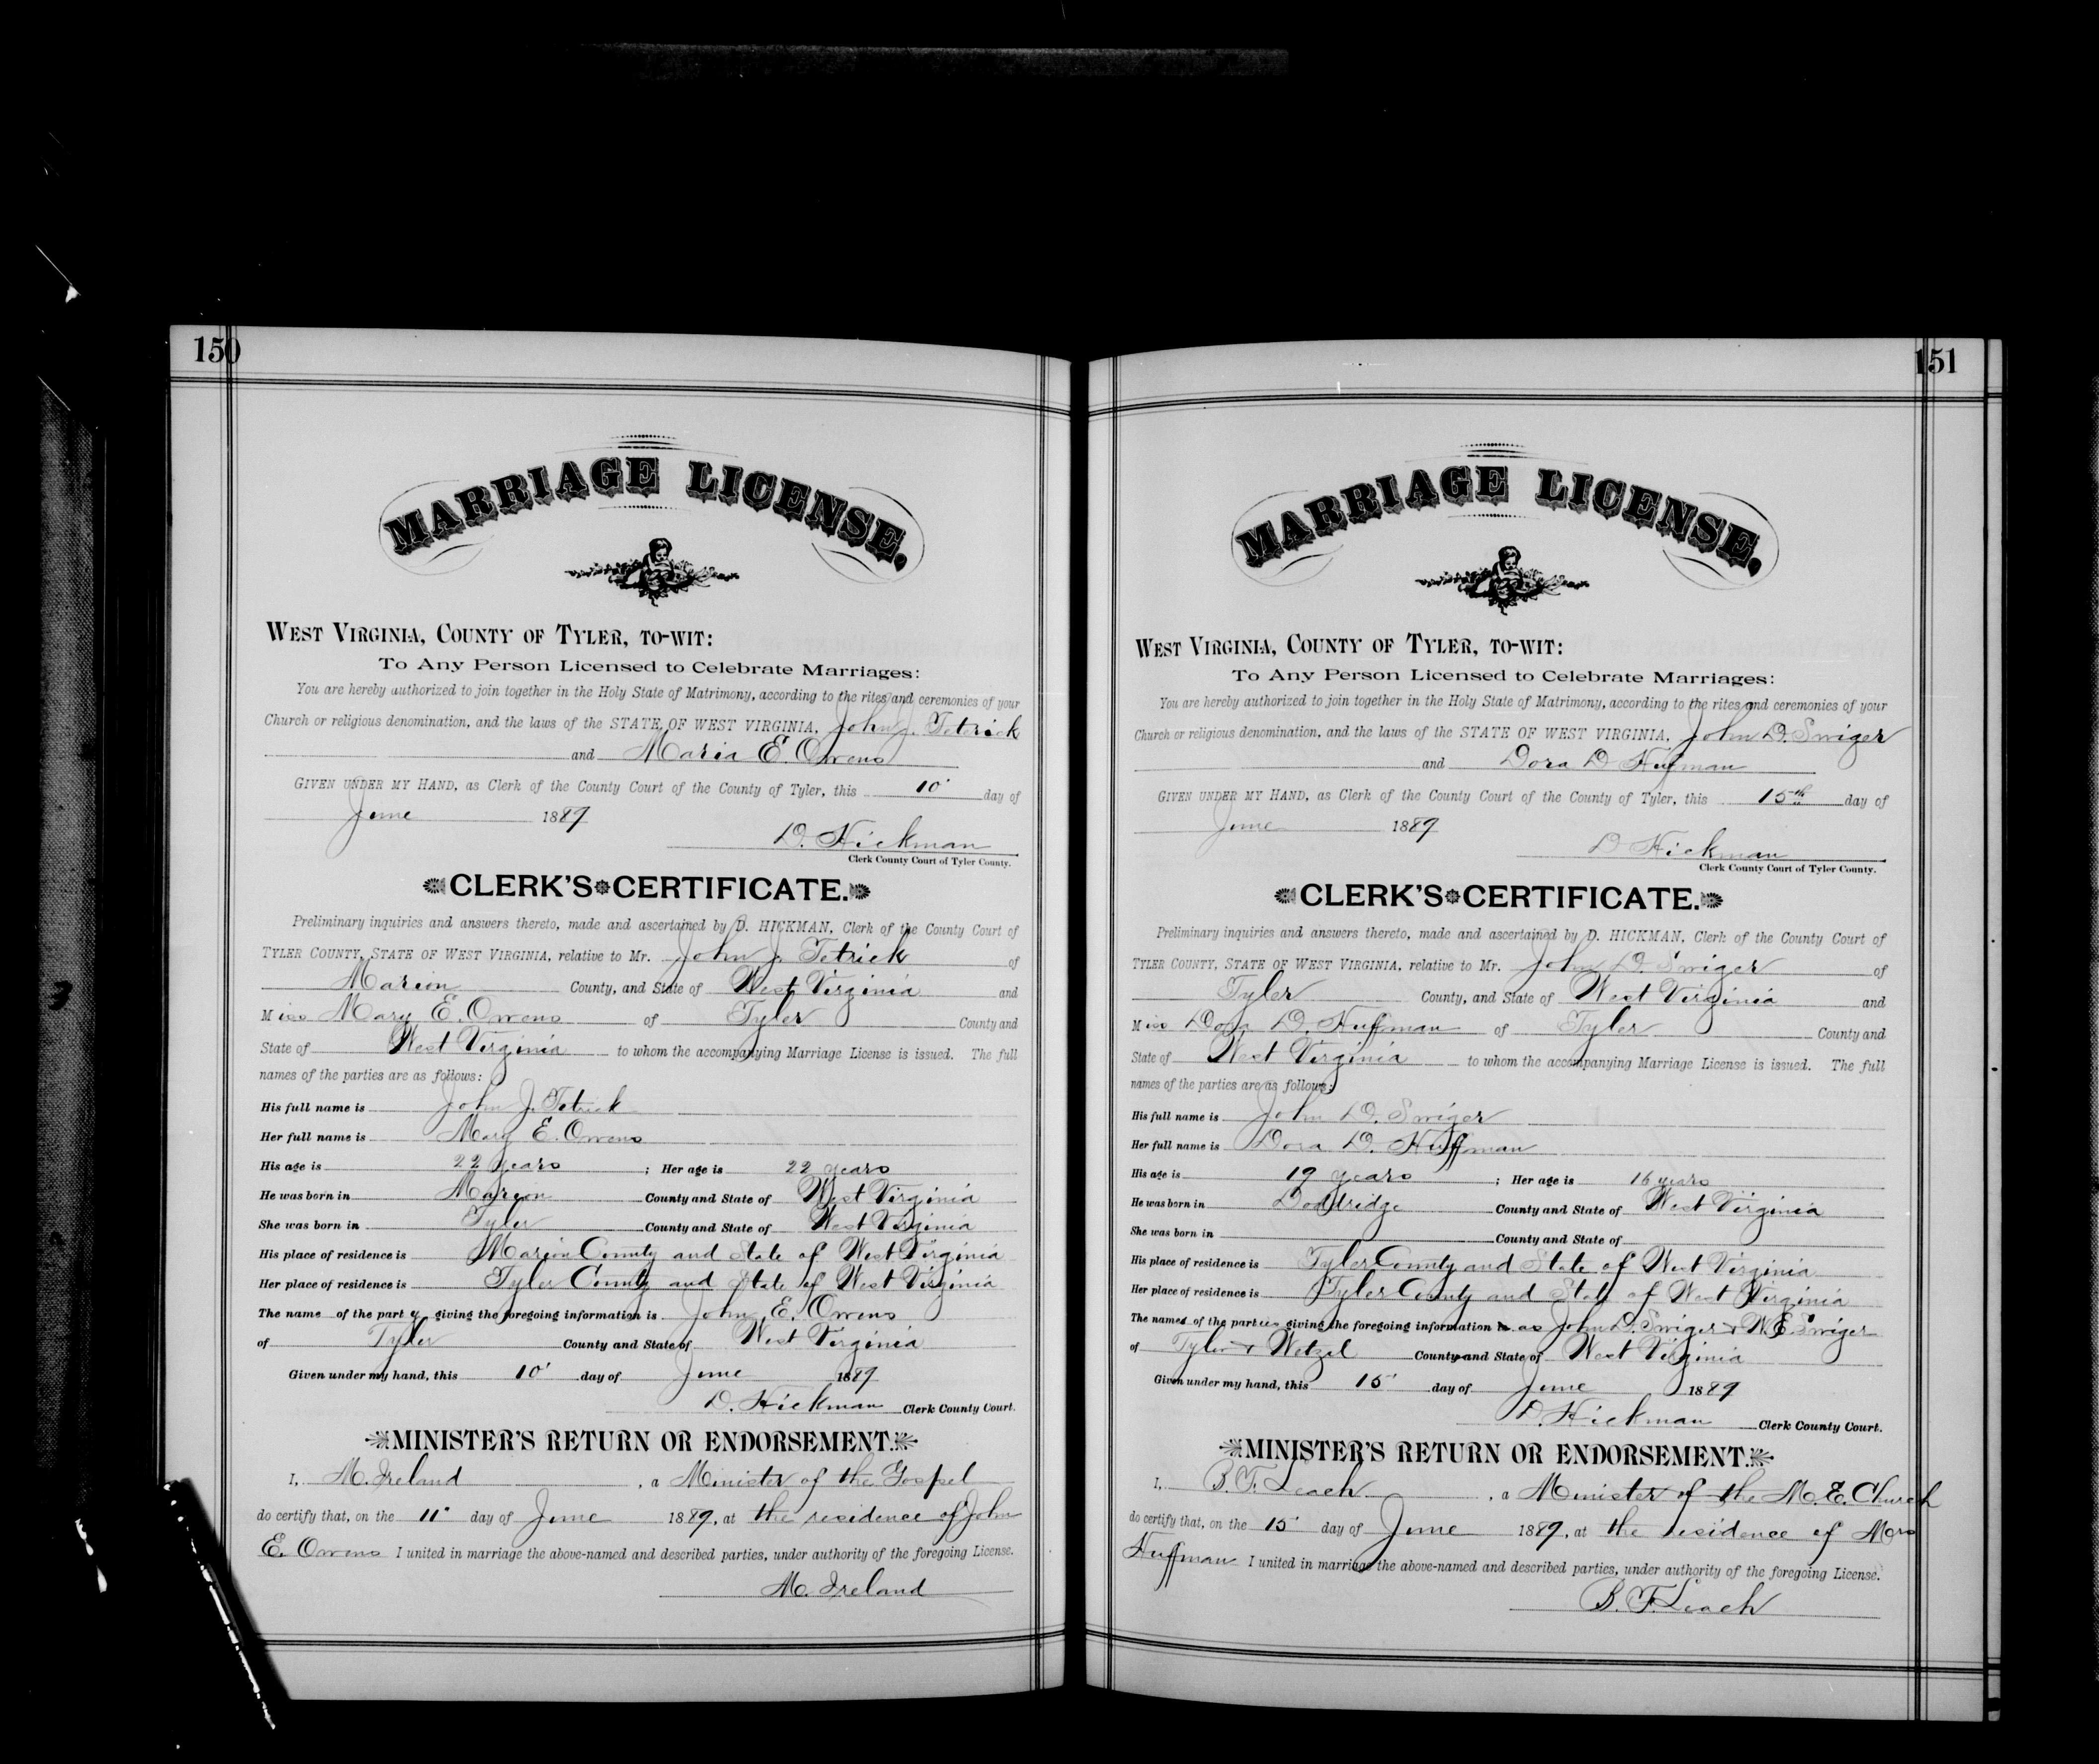 150
MARRIAGE LICENSE.
WEST VIRGINIA, COUNTY OF TYLER, TO-WIT:
To Any Person Licensed to Celebrate Marriages:
You are hereby authorized to join together in the Holy State of Matrimony, according to the rites and ceremonies of your
Church or religious denomination, and the laws of the STATE OF WEST VIRGINIA, John J. Tetrick
and Maria E. Owens
GIVEN UNDER MY HAND, as Clerk of the County Court of the County of Tyler, this 10' day of
June 1889
D. Hickman
Clerk County Court of Tyler County.
CLERK'S CERTIFICATE.
Preliminary inquiries and answers thereto, made and ascertained by D. HICKMAN, Clerk of the County Court of
TYLER COUNTY, STATE OF WEST VIRGINIA, relative to Mr. John J. Tetrick of
Marion County, and State of West Virginia and
Miss Mary E. Owens of Tyler County and
State of West Virginia to whom the accompanying Marriage License is issued. The full
names of the parties are as follows:
His full name is John J. Tetrick
Her full name is Mary E. Owens
His age is 22 years ; Her age is 22 years
He was born in Marion County and State of West Virginia
She was born in Tyler County and State of West Virginia
His place of residence is Marion County and State of West Virginia
Her place of residence is Tyler County and State of West Virginia
The name of the party giving the foregoing information is John E. Owens
of Tyler County and State of West Virginia
Given under my hand, this 10' day of June 1889
D. Hickman Clerk County Court.
MINISTER'S RETURN OR ENDORSEMENT.
I, M. Ireland, a Minister of the Gospel
do certify that, on the 11' day of June 1889, at the residence of John
E. Owens I united in marriage the above-named and described parties, under authority of the foregoing License.
M. Ireland
151
MARRIAGE LICENSE.
WEST VIRGINIA, COUNTY OF TYLER, TO-WIT:
To Any Person Licensed to Celebrate Marriages:
You are hereby authorized to join together in the Holy State of Matrimony, according to the rites and ceremonies of your
Church or religious denomination, and the laws of the STATE OF WEST VIRGINIA, John D. Swiger
and Dora D Hufman
GIVEN UNDER MY HAND, as Clerk of the County Court of the County of Tyler, this 15th day of
June 1889
D Hickman
Clerk County Court of Tyler County.
CLERK'S CERTIFICATE.
Preliminary inquiries and answers thereto, made and ascertained by D. HICKMAN, Clerk of the County Court of
TYLER COUNTY, STATE OF WEST VIRGINIA, relative to Mr. John D. Swiger of
Tyler County, and State of West Virginia and
Miss Dora D. Huffman of Tyler County and
State of West Virginia to whom the accompanying Marriage License is issued. The full
names of the parties are as follows:
His full name is John D. Swiger
Her full name is Dora D. Huffman
His age is 19 years ; Her age is 16 years
He was born in Doddridge County and State of West Virginia
She was born in County and State of
His place of residence is Tyler County and State of West Virginia
Her place of residence is Tyler County and State of West Virginia
The names of the parties giving the foregoing information is as John D. Swiger + W.E. Swiger
of Tyler + Wetzel County and State of West Virginia
Given under my hand, this 15' day of June 1889
D. Hickman Clerk County Court.
MINISTER'S RETURN OR ENDORSEMENT.
I, B. F. Leach, a Minister of the M. E. Church
do certify that, on the 15' day of June 1889, at the residence of Mrs
Huffman I united in marriage the above-named and described parties, under authority of the foregoing License.
B. F. Leach
3